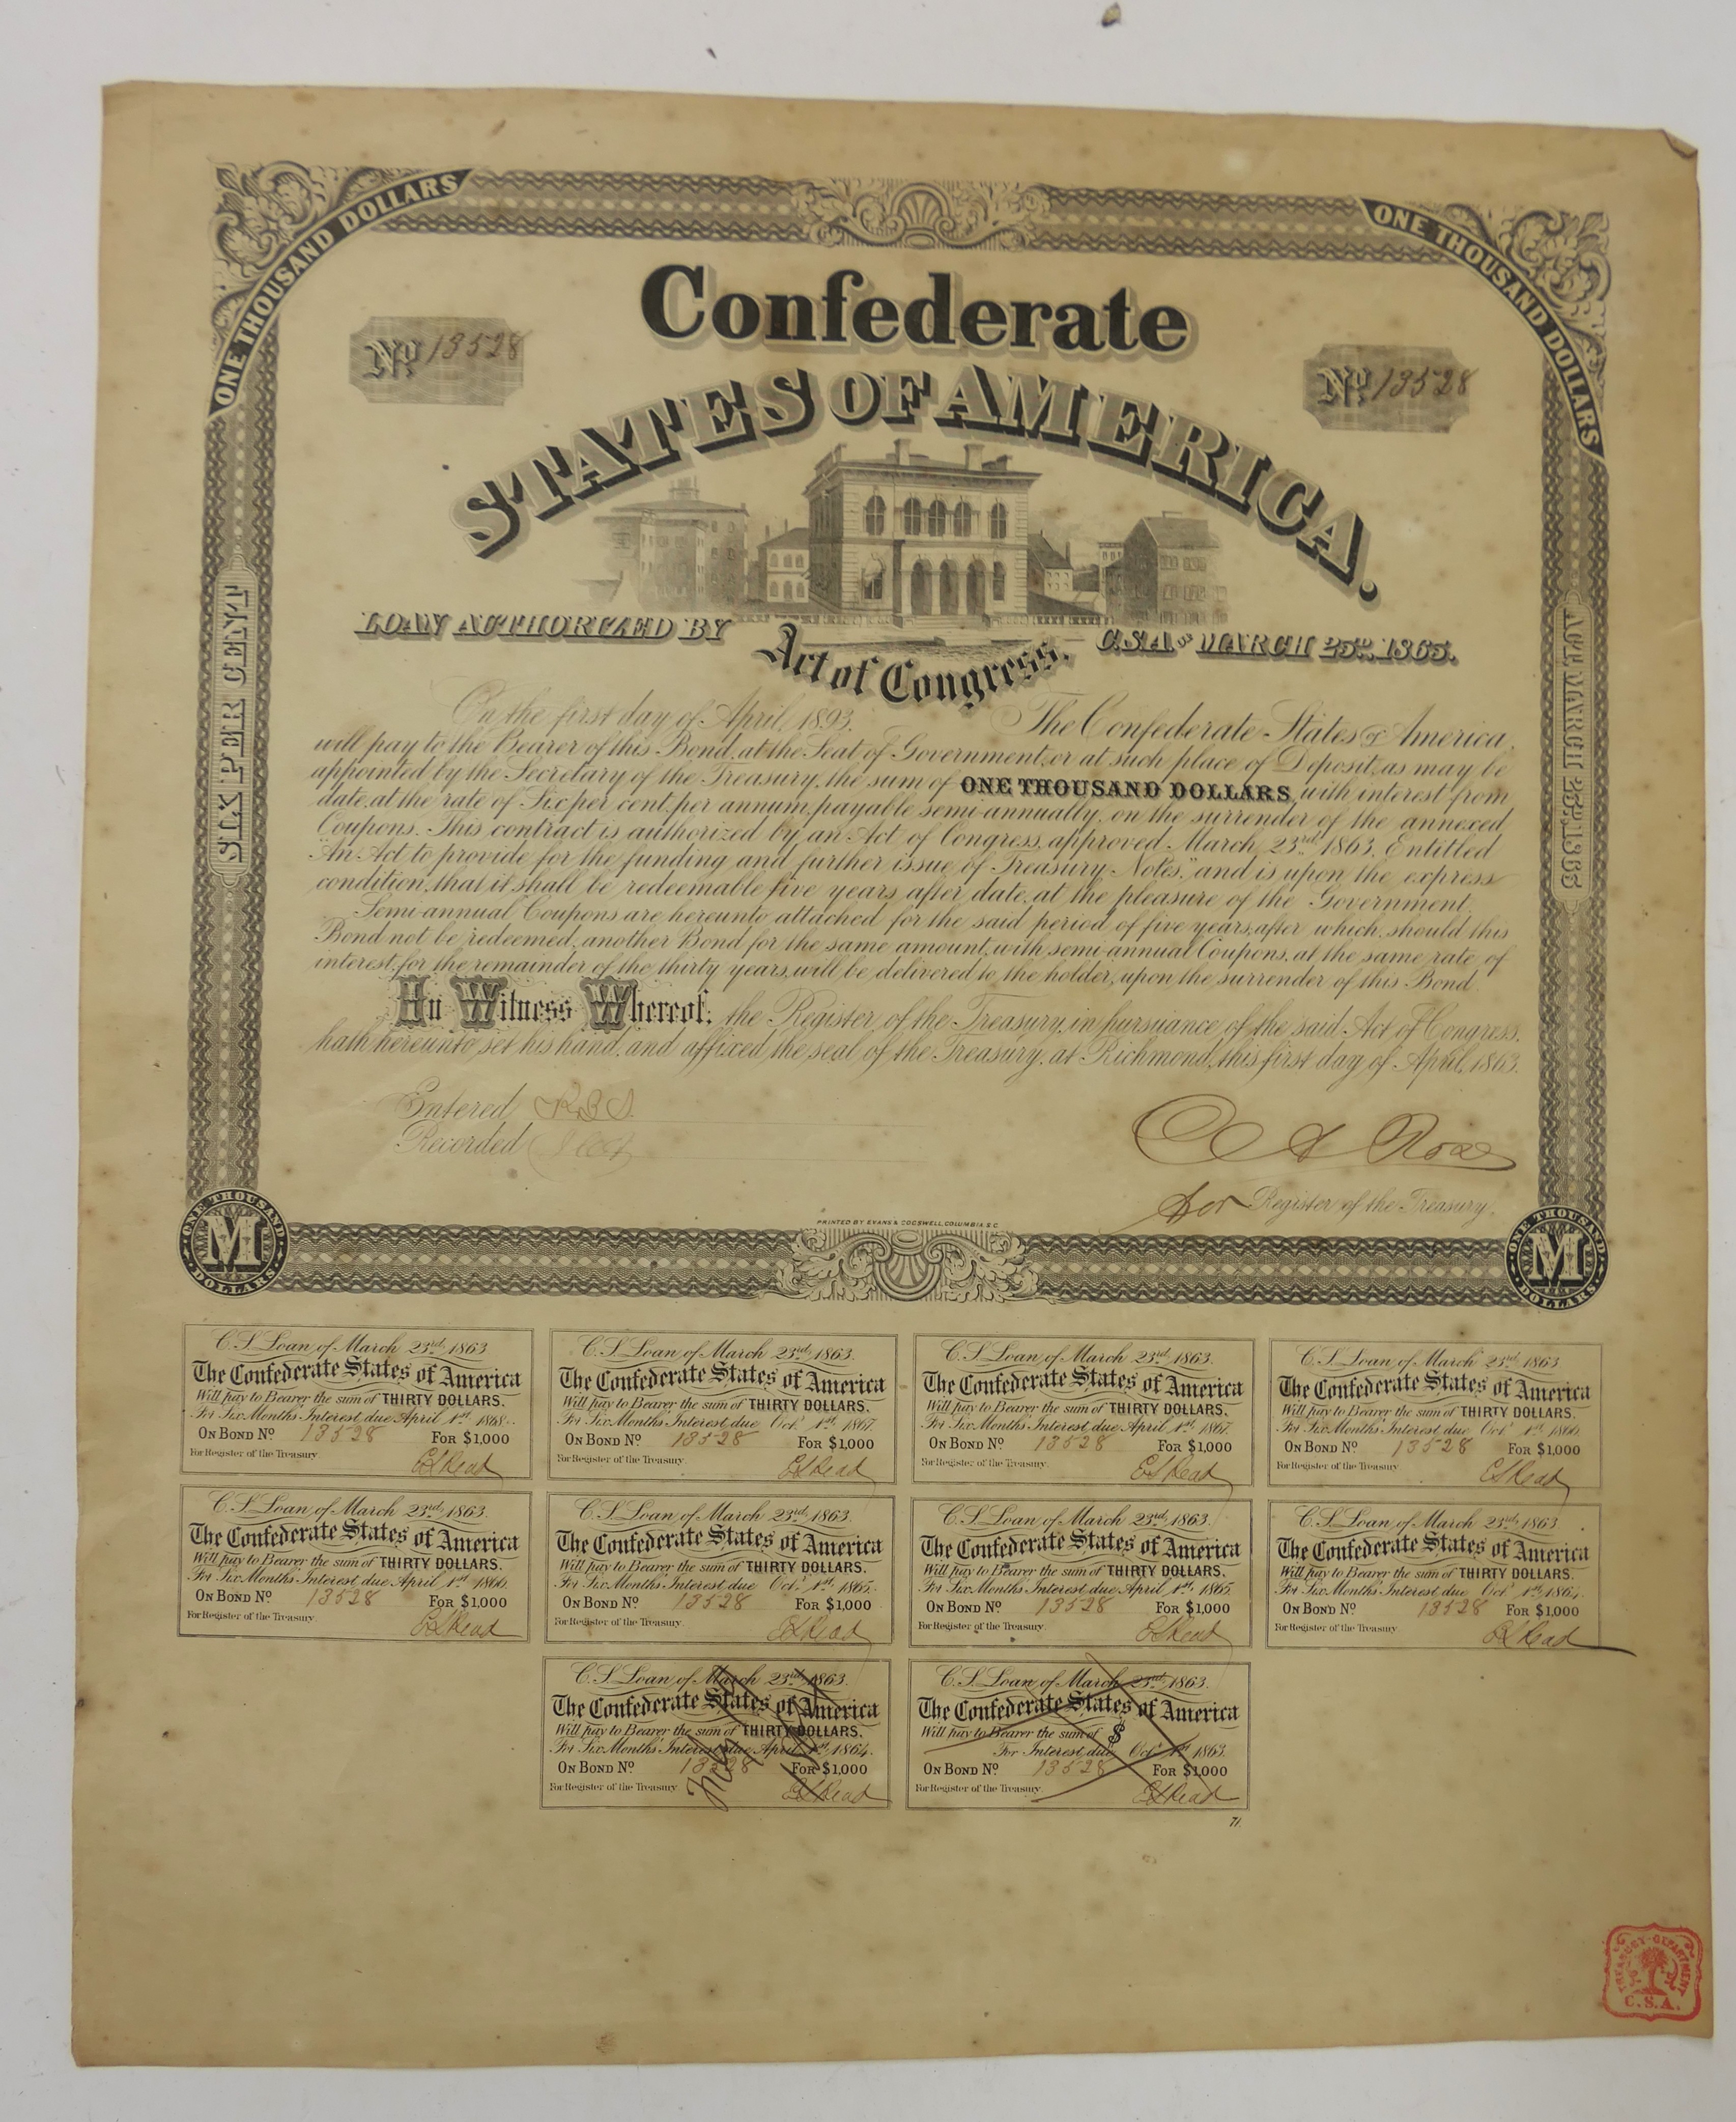 ONE THOUSAND DOLLARS
ONE THOUSAND DOLLARS
Confederate
Nº 13528
Nº 13528
STATES OF AMERICA.
LOAN AUTHORIZED BY
Act of Congress.
C.S.A. OF MARCH 23RD, 1863.
SIX PER CENT
ACT, MARCH 23RD, 1863
On the first day of April, 1893. The Confederate States of America,
will pay to the Bearer of this Bond, at the Seat of Government, or at such place of Deposit, as may be
appointed by the Secretary of the Treasury, the sum of ONE THOUSAND DOLLARS, with interest from
date, at the rate of Six per cent. per annum, payable semi-annually, on the surrender of the annexed
Coupons. This contract is authorized by an Act of Congress, approved March, 23rd, 1863, Entitled
"An Act to provide for the funding and further issue of Treasury Notes," and is upon the express
condition, that it shall be redeemable five years after date, at the pleasure of the Government.
Semi-annual Coupons are hereunto attached for the said period of five years, after which, should this
Bond not be redeemed, another Bond for the same amount, with semi-annual Coupons, at the same rate of
interest, for the remainder of the thirty years, will be delivered to the holder, upon the surrender of this Bond.
In Witness Whereof, the Register of the Treasury, in pursuance of the said Act of Congress,
hath hereunto set his hand, and affixed the seal of the Treasury, at Richmond, this first day of April, 1863.
Entered
Recorded
C A Rose
for Register of the Treasury.
PRINTED BY EVANS & COGSWELL, COLUMBIA, S.C.
ONE THOUSAND M DOLLARS
ONE THOUSAND M DOLLARS
C. S. Loan of March 23rd, 1863
The Confederate States of America
Will pay to Bearer the sum of THIRTY DOLLARS.
For Six Months' Interest due April 1st 1868.
ON BOND Nº 13528 FOR $1,000
For Register of the Treasury. E S Read
C. S. Loan of March 23rd, 1863.
The Confederate States of America
Will pay to Bearer the sum of THIRTY DOLLARS.
For Six Months' Interest due Oct' 1st, 1867.
ON BOND Nº 13528 FOR $1,000
For Register of the Treasury. E S Read
C. S. Loan of March 23rd, 1863.
The Confederate States of America
Will pay to Bearer the sum of THIRTY DOLLARS.
For Six Months' Interest due April 1st, 1867.
ON BOND Nº 13528 FOR $1,000
For Register of the Treasury. E S Read
C. S. Loan of March 23rd, 1863.
The Confederate States of America
Will pay to Bearer the sum of THIRTY DOLLARS.
For Six Months' Interest due Oct' 1st, 1866.
ON BOND Nº 13528 FOR $1,000
For Register of the Treasury. E S Read
C. S. Loan of March 23rd, 1863.
The Confederate States of America
Will pay to Bearer the sum of THIRTY DOLLARS.
For Six Months' Interest due April 1st 1866.
ON BOND Nº 13528 FOR $1,000
For Register of the Treasury. E S Read
C. S. Loan of March 23rd, 1863.
The Confederate States of America
Will pay to Bearer the sum of THIRTY DOLLARS.
For Six Months' Interest due Oct' 1st, 1865.
ON BOND Nº 13528 FOR $1,000
For Register of the Treasury. E S Read
C. S. Loan of March 23rd, 1863.
The Confederate States of America
Will pay to Bearer the sum of THIRTY DOLLARS.
For Six Months' Interest due April 1st, 1865.
ON BOND Nº 13528 FOR $1,000
For Register of the Treasury. E S Read
C. S. Loan of March 23rd, 1863
The Confederate States of America
Will pay to Bearer the sum of THIRTY DOLLARS.
For Six Months' Interest due Oct' 1st, 1864.
ON BOND Nº 13528 FOR $1,000
For Register of the Treasury. E S Read
C. S. Loan of March 23rd, 1863.
The Confederate States of America
Will pay to Bearer the sum of THIRTY DOLLARS.
For Six Months' Interest due April 1st, 1864.
ON BOND Nº 13528 FOR $1,000
For Register of the Treasury. E S Read
C. S. Loan of March 23rd, 1863.
The Confederate States of America
Will pay to Bearer the sum of $
For Interest due Oct' 1st 1863.
ON BOND Nº 13528 FOR $1,000
For Register of the Treasury. E S Read
71.
TREASURY DEPARTMENT
C.S.A.